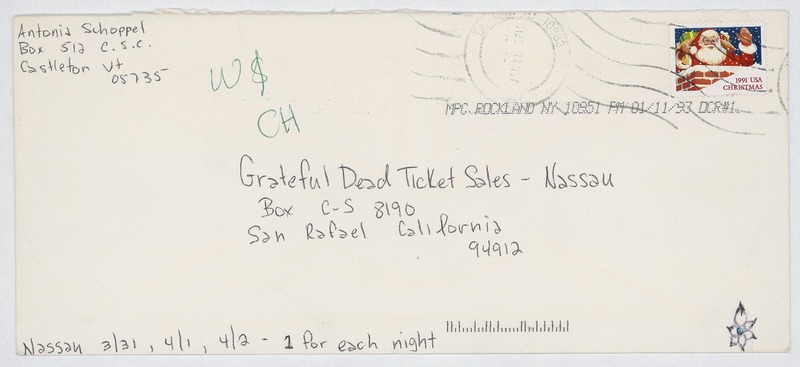 Antonia Schoppel
Box 512 C.S.C.
Castleton Vt
05735
W$
CH
10953
1991 USA
CHRISTMAS
MPC ROCKLAND NY 10951 PM 01/11/93 DCR#1
Grateful Dead Ticket Sales - Nassau
Box C-S 8190
San Rafael California
94912
Nassau 3/31, 4/1, 4/2 - 1 for each night